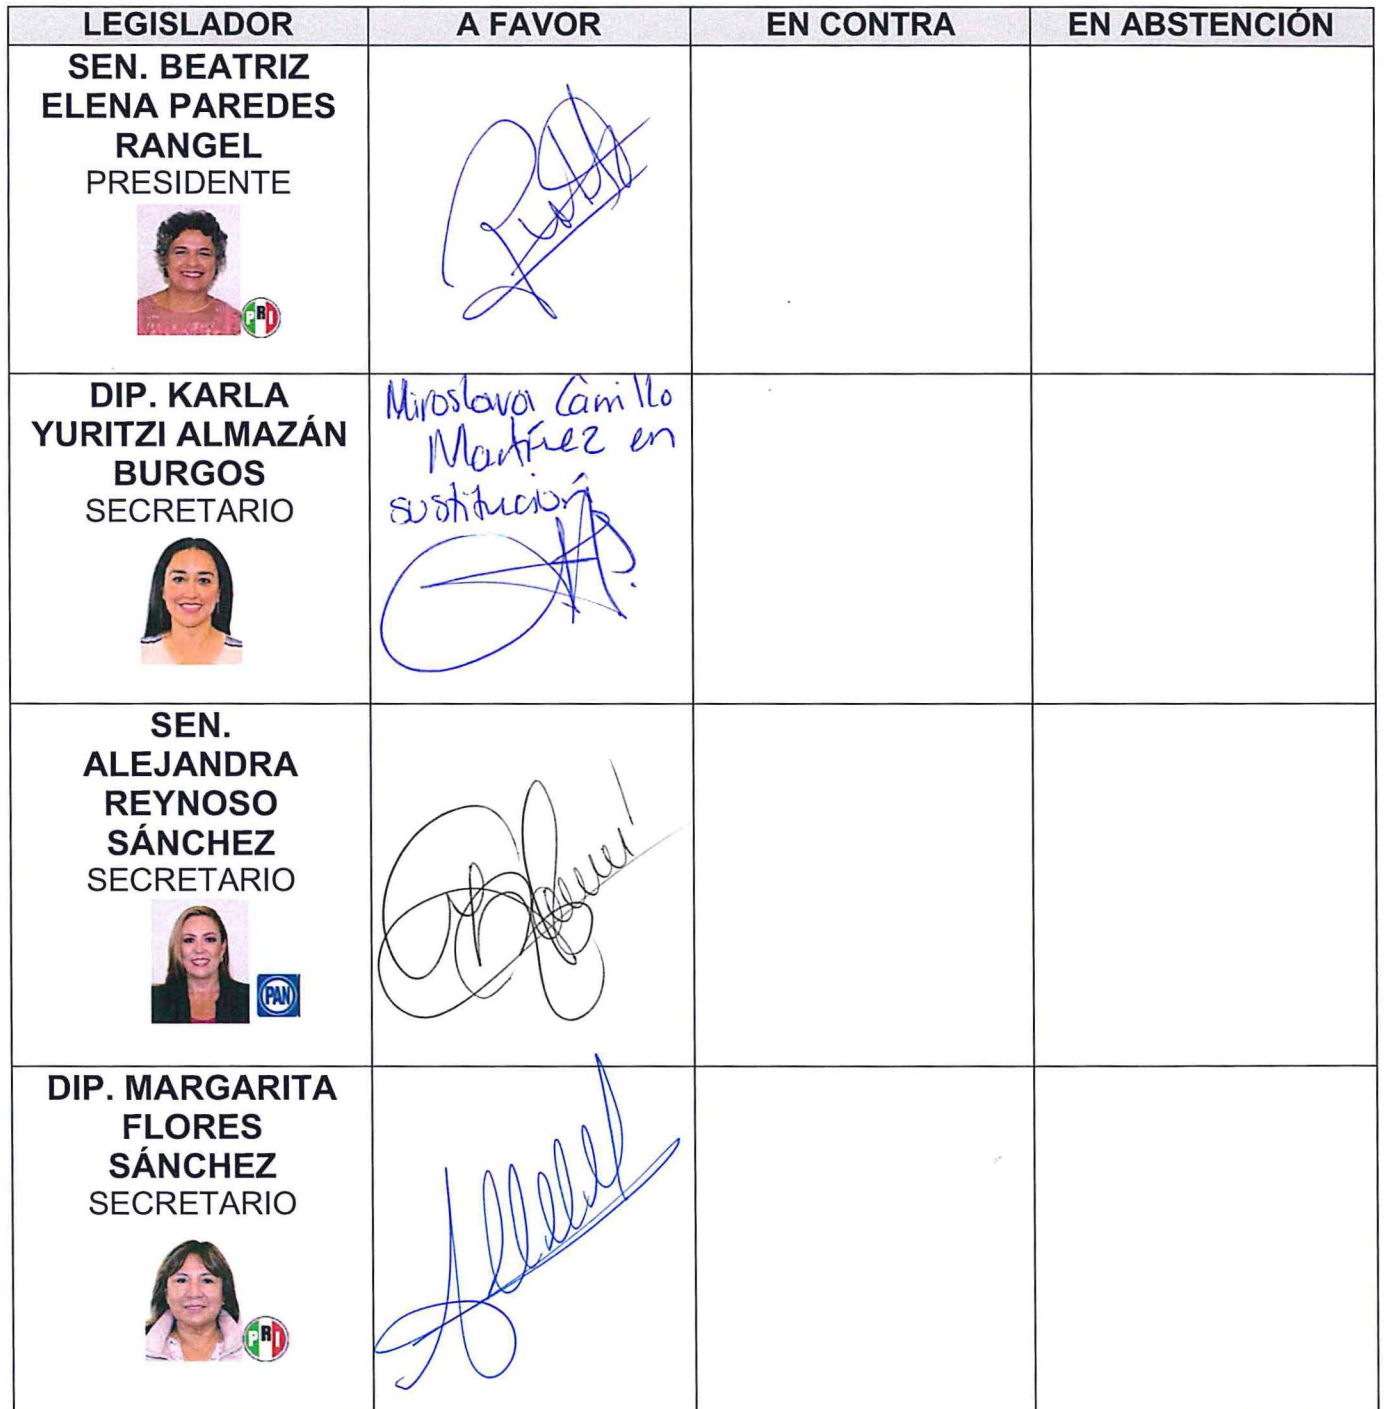 LEGISLADOR A FAVOR EN CONTRA EN ABSTENCIÓN
SEN. BEATRIZ
ELENA PAREDES
RANGEL
PRESIDENTE
PRI
DIP. KARLA
YURITZI ALMAZÁN
BURGOS
SECRETARIO
Miroslava Carrillo
Martínez en
sustitución
SEN.
ALEJANDRA
REYNOSO
SÁNCHEZ
SECRETARIO
PAN
DIP. MARGARITA
FLORES
SÁNCHEZ
SECRETARIO
PRI